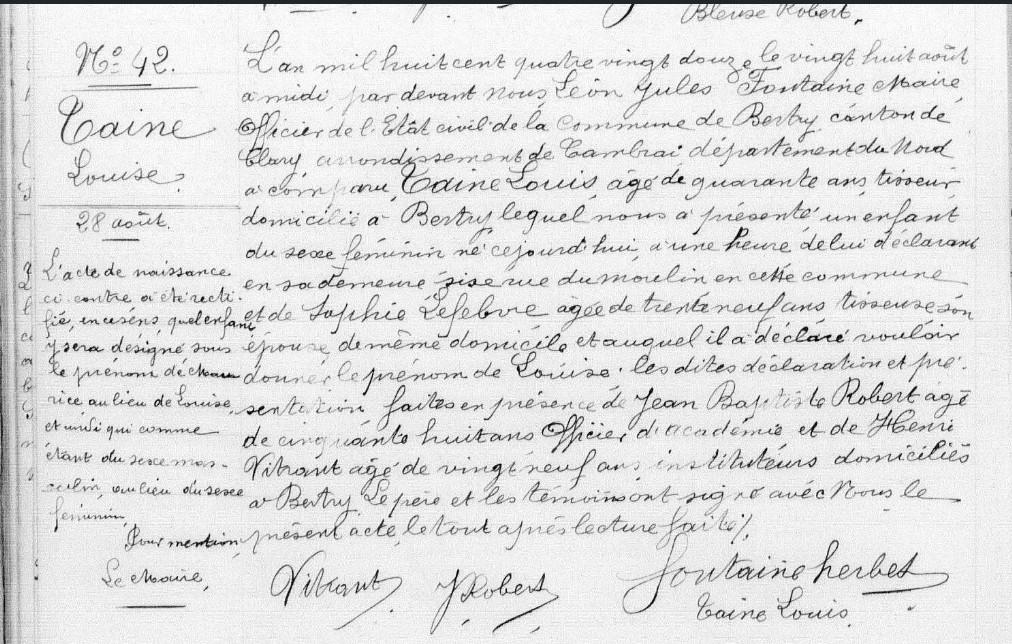 Bleuse Robert.
N.o 42.
Taine
Louise.
28 août.
L'acte de naissance
ci-contre a été recti-
fié, en ce sens, que l'enfant
y sera désigné sous
le prénom de Mau
rice au lieu de Louise,
et ainsi qui comme
étant du sexe mas-
culin, au lieu du sexe
féminin,
Pour mention
Le Maire,
L'an mil huit cent quatre vingt douze, le vingt huit août
à midi par devant nous Léon Jules Fontaine Maire
Officier de l'Etât civil de la Commune de Bertry, canton de
Clary arrondissement de Cambrai département du Nord
a comparu Taine Louis âgé de quarante ans tisseur
domicilié à Bertry lequel nous a présenté un enfant
du sexe féminin né cejourd'hui, à une heure, de lui déclarant
en sa demeure sise rue du moulin en cette commune
et de Sophie Lefebvre âgée de trente neuf ans tisseuse son
épouse, de même domicile et auquel il a déclaré vouloir
donner le prénom de Louise. les dites déclaration et pré-
sentation faites en présence de Jean Baptiste Robert âgé
de cinquante huit ans Officier d'académie et de Henri
Vitrant âgé de vingt neuf ans instituteurs domiciliés
à Bertry. Le père et les témoins ont signé avec Nous le
présent acte, le tout après lecture faite /.
Vitrant JRobert Fontaine herbet
Taine Louis.